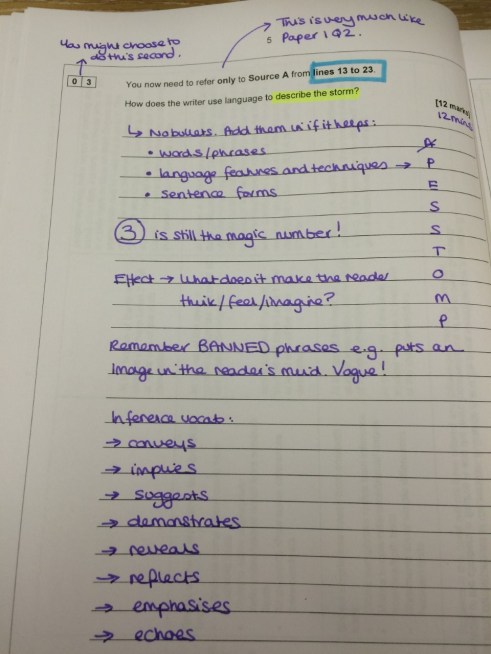 You might choose to
do this second.
This is very much like
Paper 1 Q2.
5
0 3
You now need to refer only to Source A from lines 13 to 23.
How does the writer use language to describe the storm?
[12 marks]
12 mins
↳ No bullets. Add them in if it helps:
• words/phrases
• language features and techniques →
P
• sentence forms
E
S
③ is still the magic number!
S
T
Effect → What does it make the reader
O
think/feel/imagine?
M
P
Remember BANNED phrases e.g. puts an
image in the reader's mind. Vague!
Inference vocab:
→ conveys
→ implies
→ suggests
→ demonstrates
→ reveals
→ reflects
→ emphasises
→ echoes